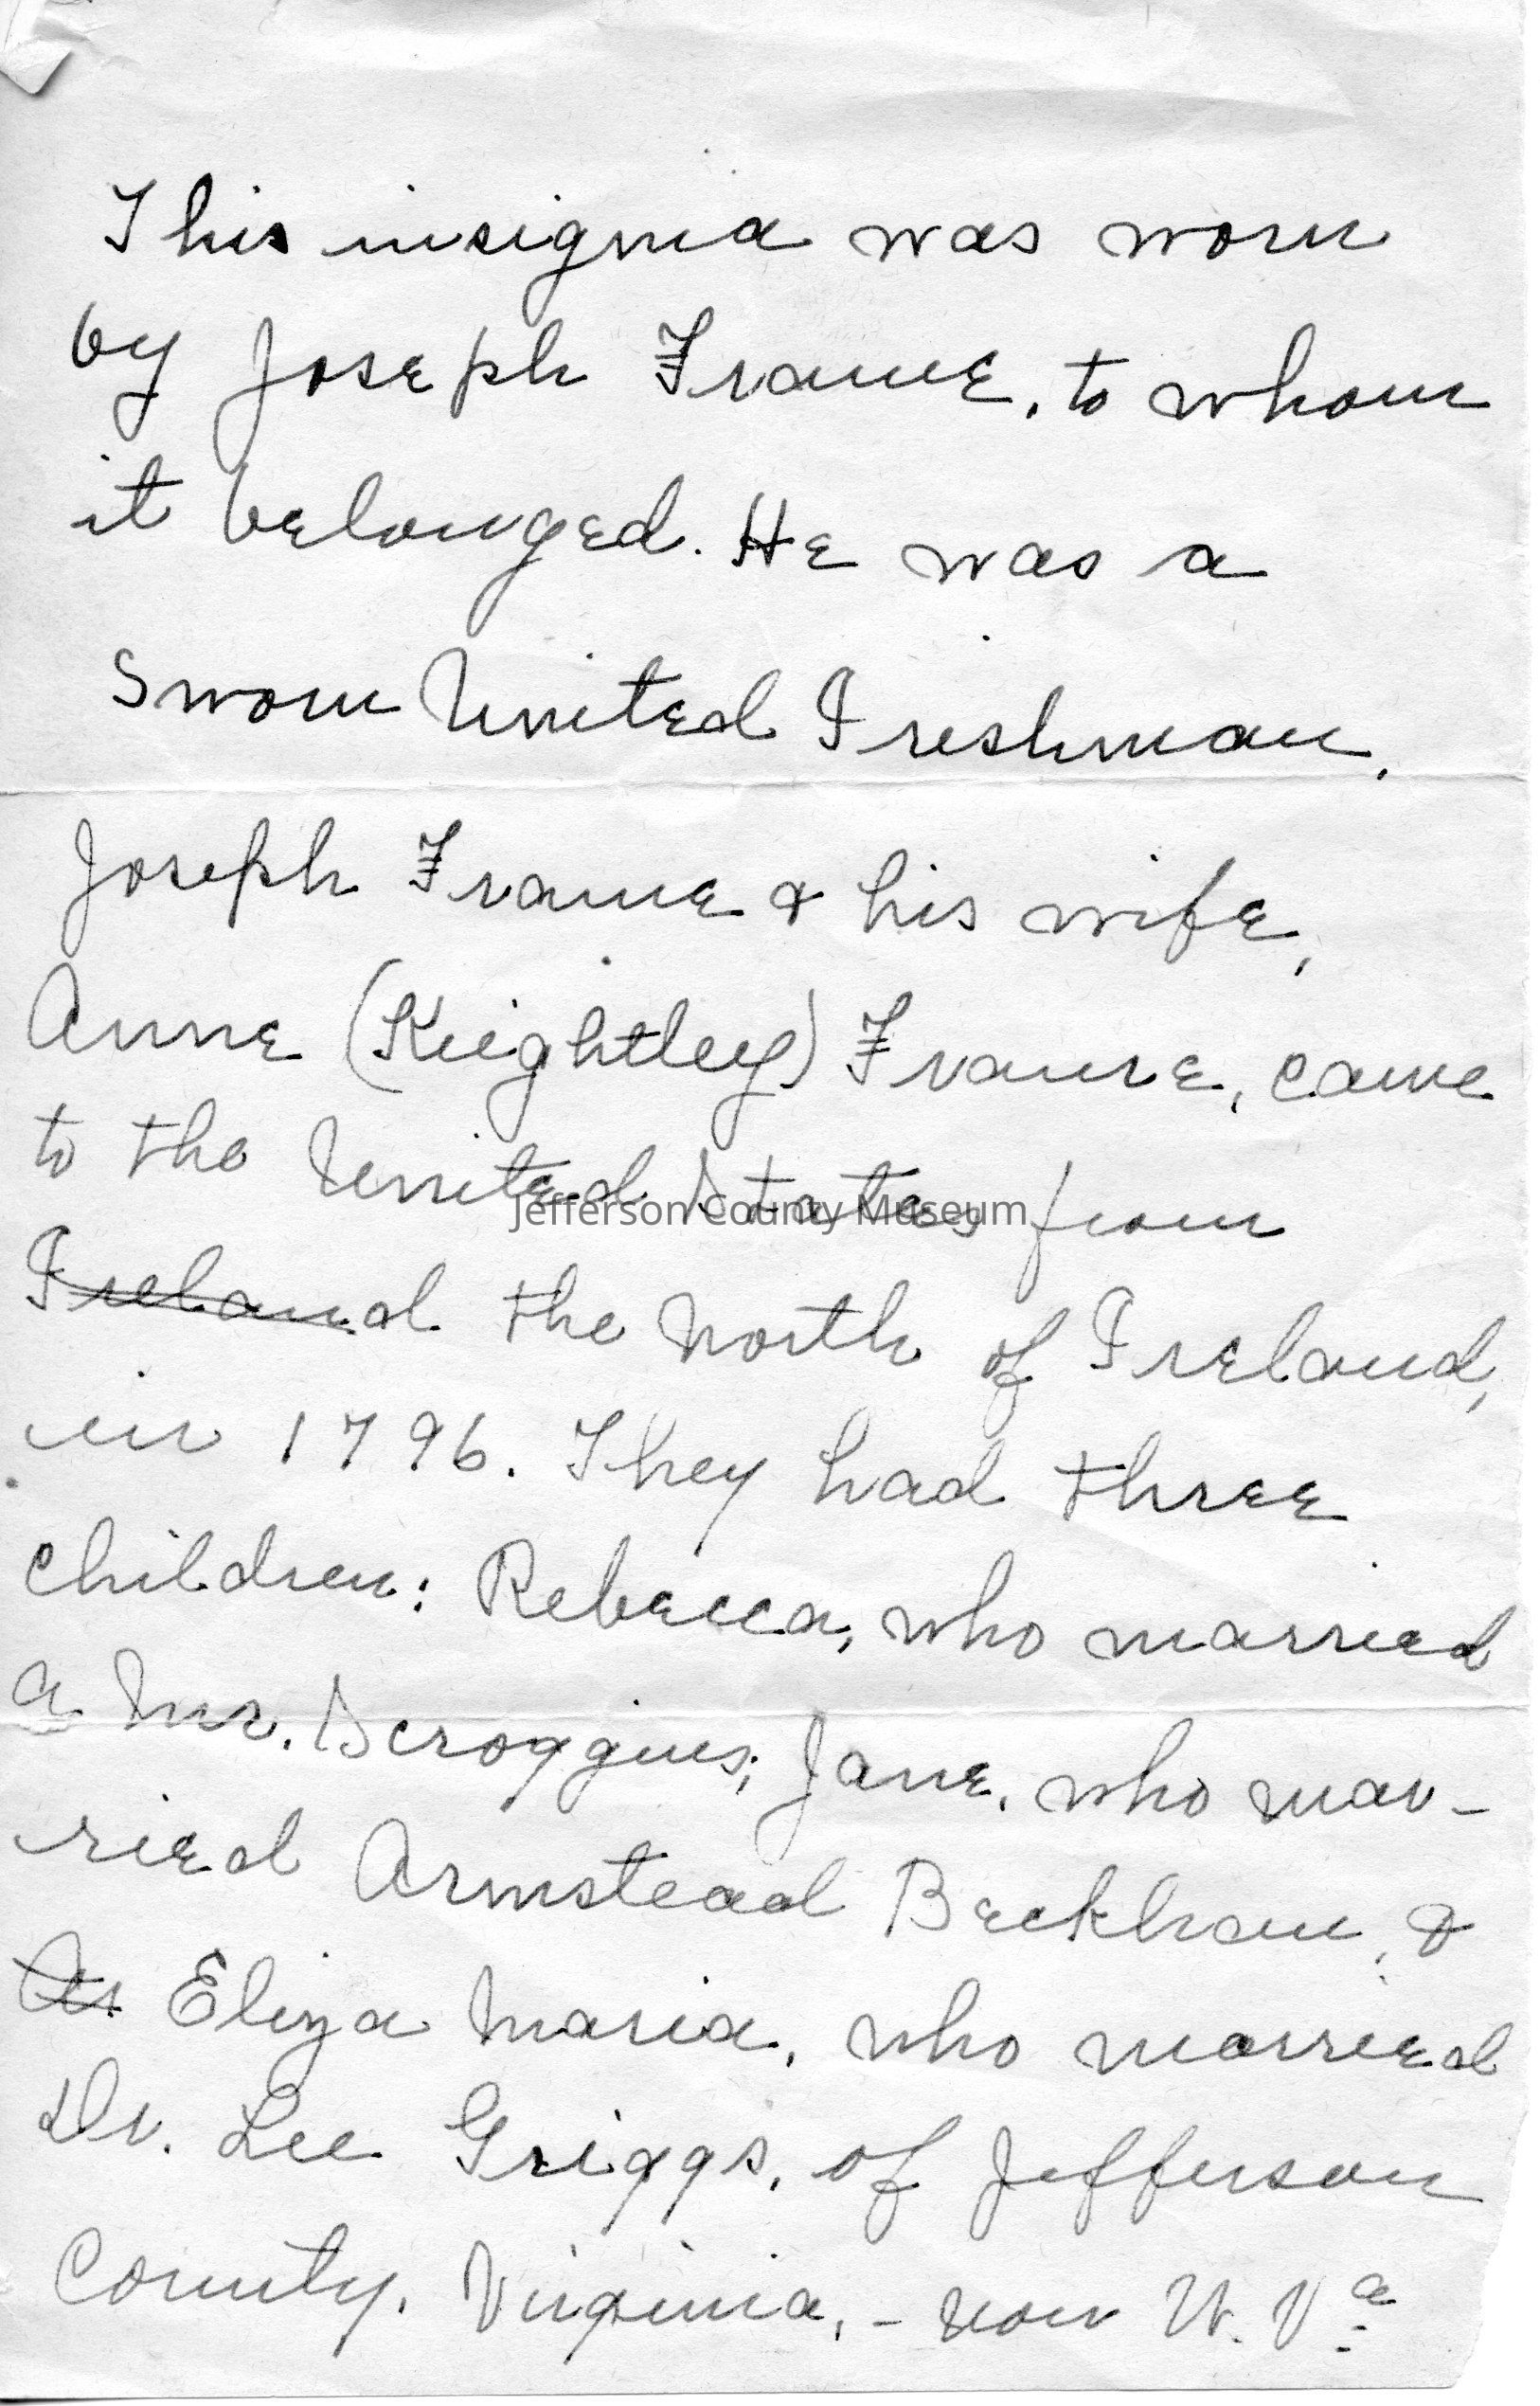 This insignia was worn
by Joseph Frame, to whom
it belonged. He was a
Sworn United Irishman.
Joseph Frame & his wife,
Anne (Keightley) Frame, came
to the United States from
Jefferson County Museum
Ireland the North of Ireland,
in 1796. They had three
children: Rebecca, who married
a Mr. Scroggins; Jane, who mar-
ried Armstead Beckham, &
Eliza Maria, who married
Dr. Lee Griggs, of Jefferson
County, Virginia, - now W. Va